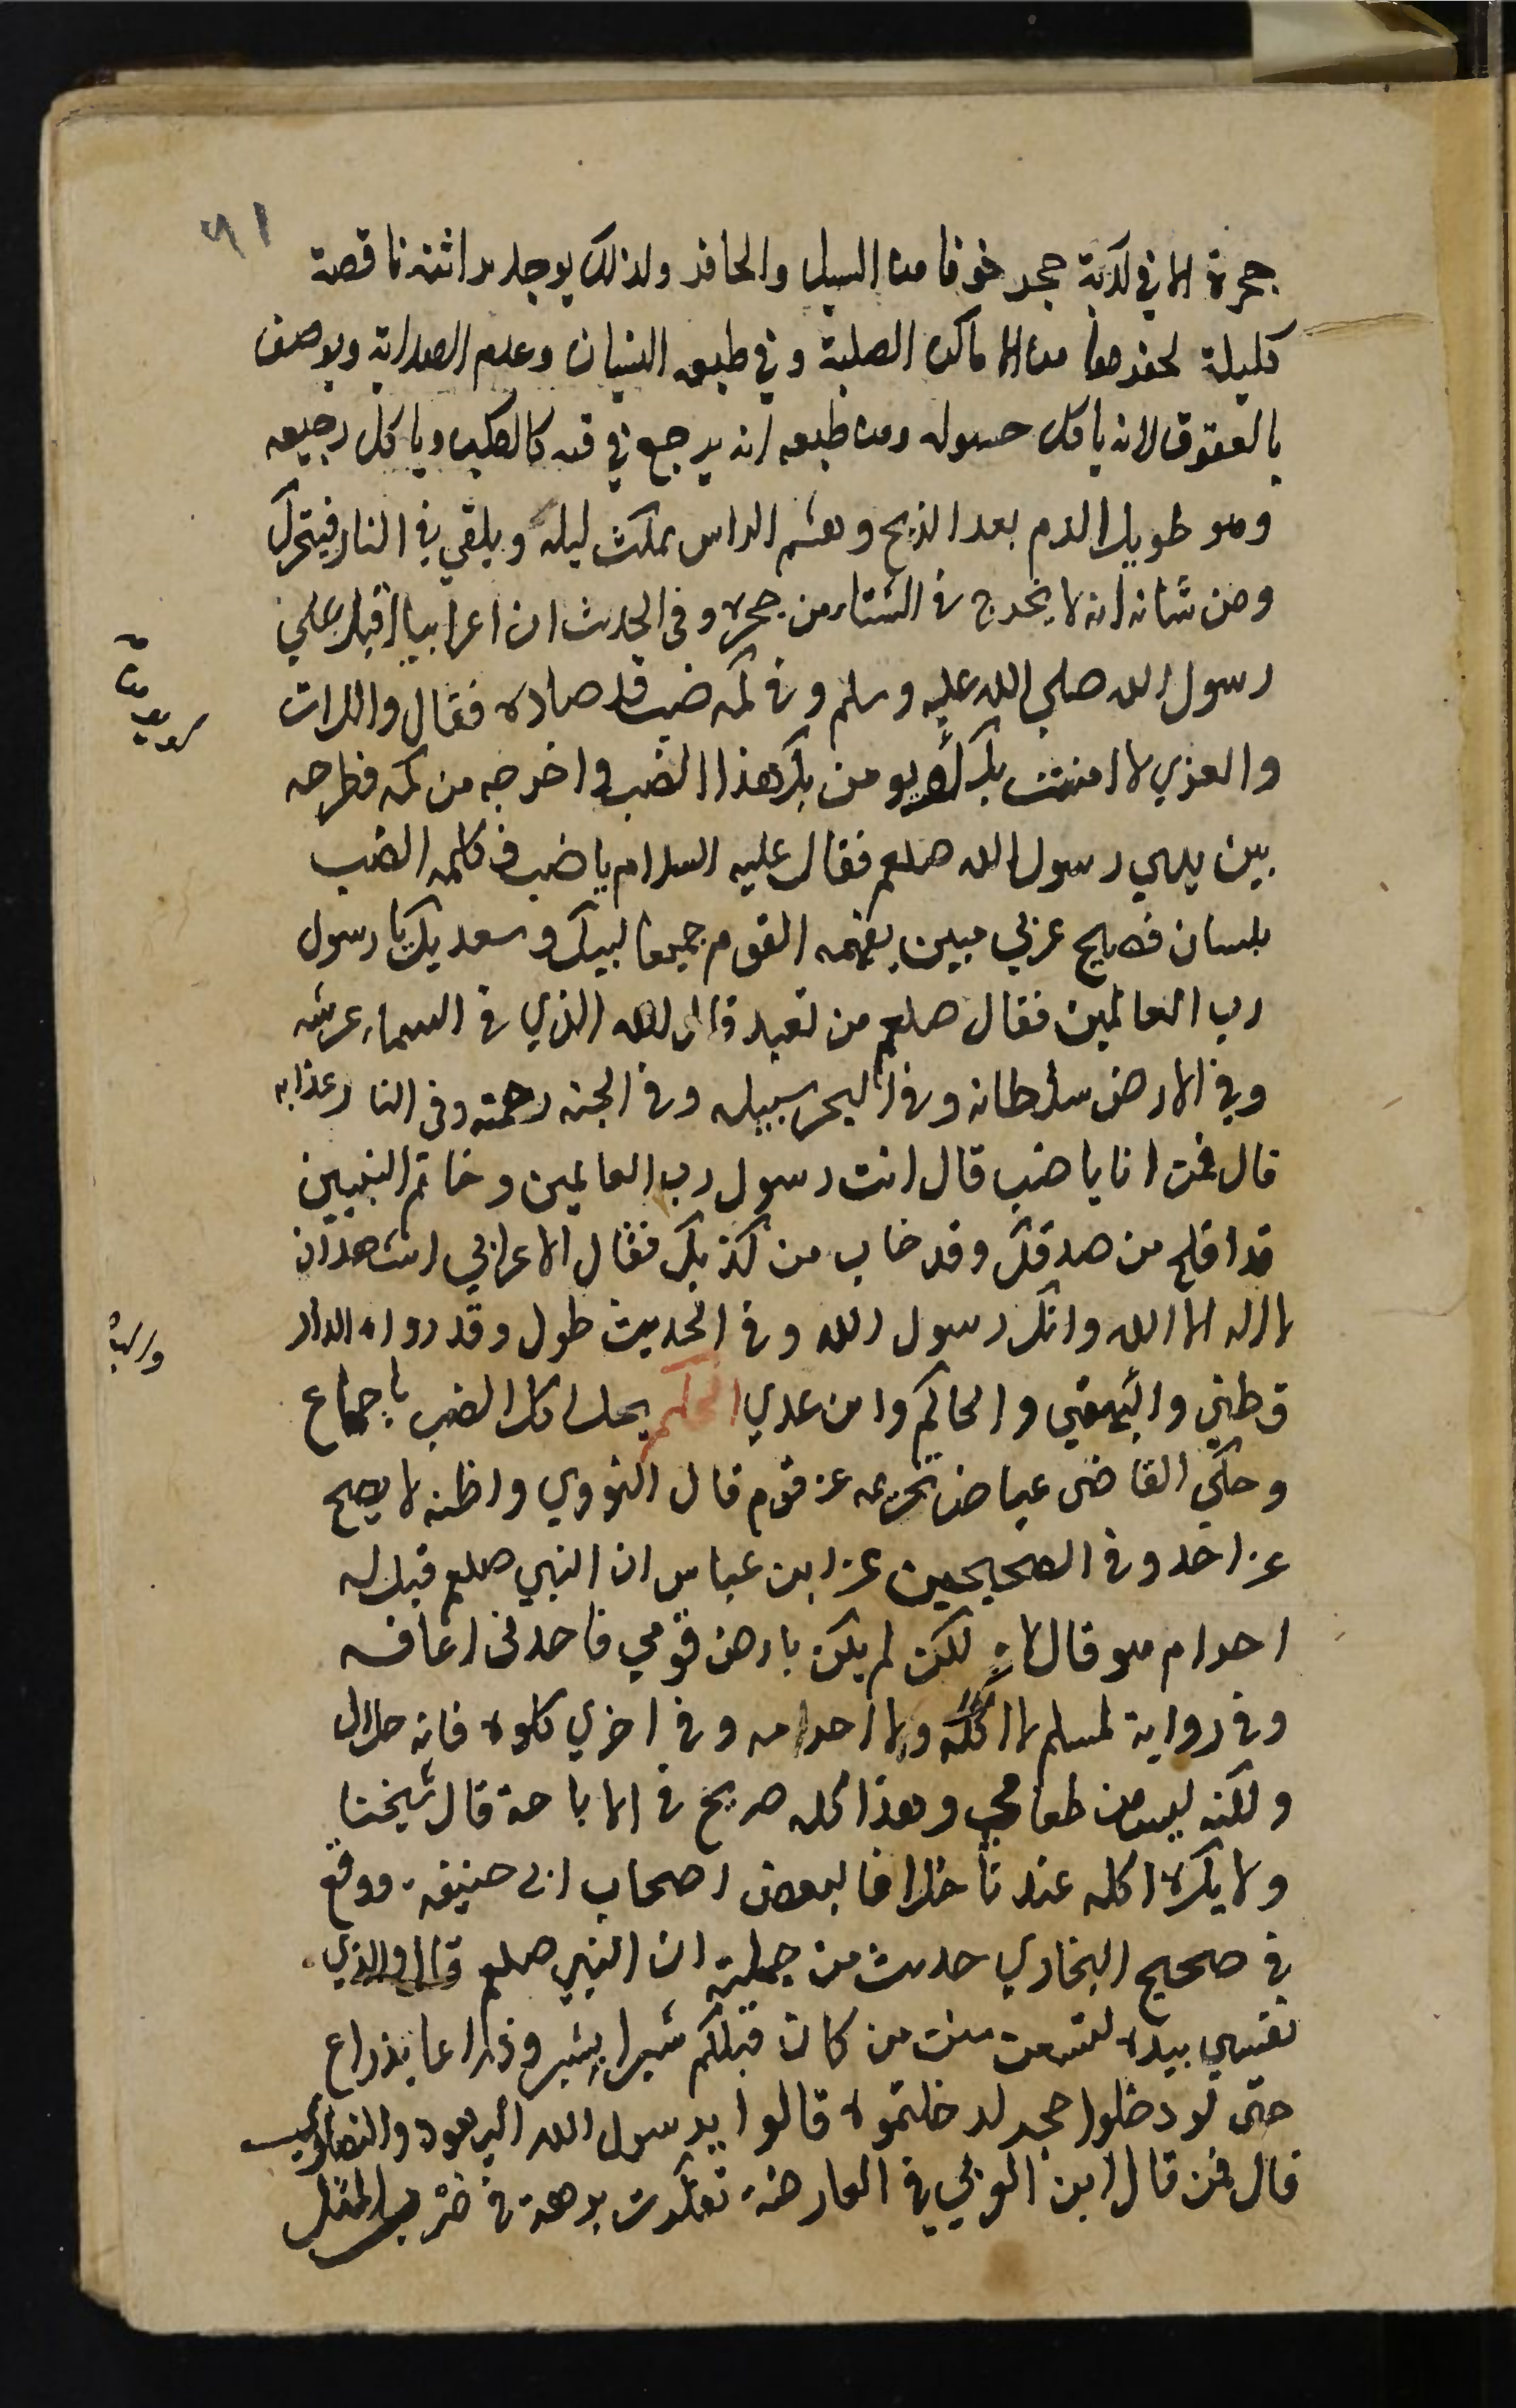 ٩١
جحرة الا في كدية حجر خوفا من السيل والحافر ولذلك يوجد براثنه ناقصة
كليلة لحفرها من الاماكن الصلبة وفي طبعه النسيان وعدم الهداية ويوصف
بالعقوق لانه ياكل حسوله ومن طبعه انه يرجع في قيه كالكلب وياكل رجيعه
وهو طويل الدم بعد الذبح وهشم الراس يمكث ليله ويلقي في النار فيتحرك
ومن شانه انه لا يخرج في الشتاء من جحره وفي الحديث ان اعرابيا اقبل علي
رسول الله صلي الله عليه وسلم وفي كمه ضب قد صاده فقال واللات
والعزي لا امنت بك او يومن بك هذا الضب واخرجه من كمه فطرحه
بين يدي رسول الله صلعم فقال عليه السلام يا ضب فكلمه الضب
بلسان فصيح عربي مبين يفهمه القوم جميعا لبيك وسعديك يا رسول
رب العالمين فقال صلعم من تعبد قال لله الذي في السماء عرشه
وفي الارض سلطانه وفي البحر سبيله وفي الجنه رحمته وفي النار عذابه
قال فمن انا يا ضب قال انت رسول رب العالمين وخاتم النبيين
قد افلح من صدقك وقد خاب من كذبك فقال الاعرابي اشهد ان
لا اله الا الله وانك رسول الله وفي الحديث طول وقد رواه الدار
قطني والبيهقي والحاكم وابن عدي الحكم يحل اكل الضب باجماع
وحكي القاضي عياض تحريمه عن قوم قال النووي واظنه لا يصح
عن احد وفي الصحيحين عن ابن عباس ان النبي صلعم قيل له
احرام هو قال لا لكن لم يكن بارض قومي فاجدني اعافه
وفي رواية لمسلم لا اكله ولا احرمه وفي اخري كلوه فانه حلال
ولكنه ليس من طعامي وهذا كله صريح في الاباحة قال شيخنا
ولا يكره اكله عندنا خلافا لبعض اصحاب ابي حنيفه ووقع
في صحيح البخاري حديث من جملته ان النبي صلعم قال والذي
نفسي بيده لتتبعن سنن من كان قبلكم شبرا بشبر وذراعا بذراع
حتى لو دخلوا جحر لدخلتموه قالوا يرسول الله اليهود والنصاري
قال فمن قال ابن العربي في العارضه تفكرت برهة في ضرب المثل